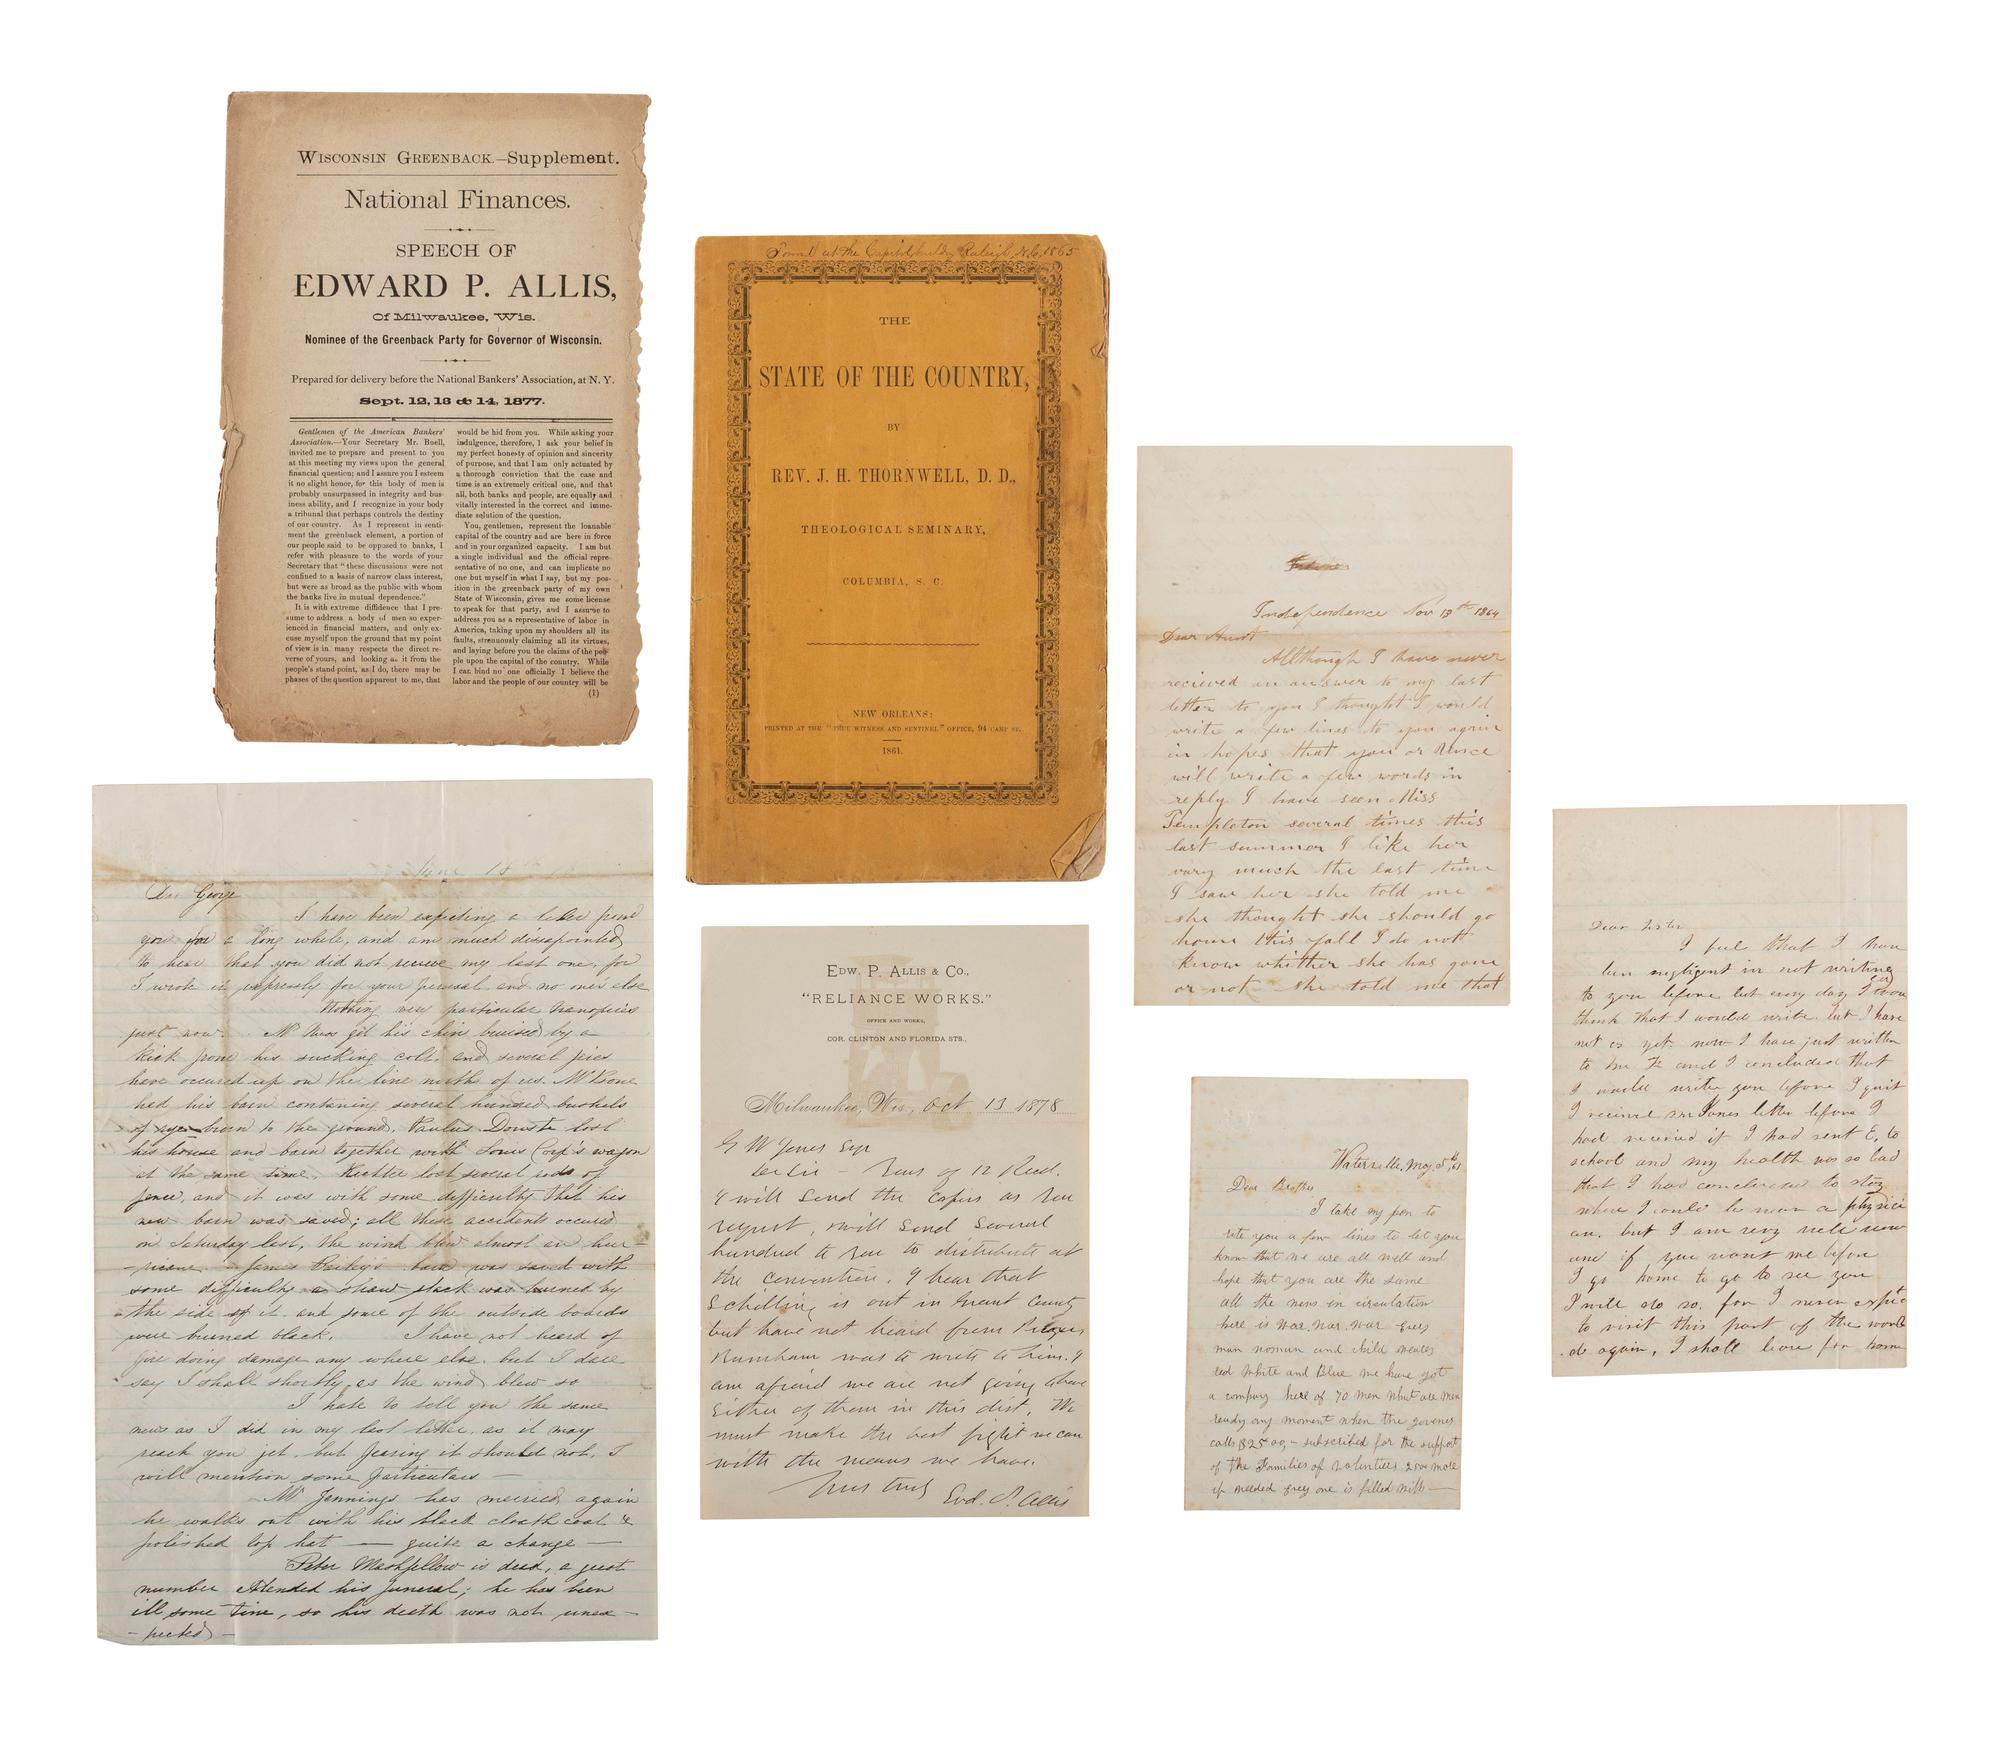 WISCONSIN GREENBACK.—Supplement.
National Finances.
SPEECH OF
EDWARD P. ALLIS,
Of Milwaukee, Wis.
Nominee of the Greenback Party for Governor of Wisconsin.
Prepared for delivery before the National Bankers' Association, at N. Y.
Sept. 12, 13 & 14, 1877.
Gentlemen of the American Bankers'
Association.—Your Secretary Mr. Buell,
invited me to prepare and present to you
at this meeting my views upon the general
financial question; and I assure you I esteem
it no slight honor, for this body of men is
probably unsurpassed in integrity and bus-
iness ability, and I recognize in your body
a tribunal that perhaps controls the destiny
of our country. As I represent in senti-
ment the greenback element, a portion of
our people said to be opposed to banks, I
refer with pleasure to the words of your
Secretary that "these discussions were not
confined to a basis of narrow class interest,
but were as broad as the public with whom
the banks live in mutual dependence."
It is with extreme diffidence that I pre-
sume to address a body of men so exper-
ienced in financial matters, and only ex-
cuse myself upon the ground that my point
of view is in many respects the direct re-
verse of yours, and looking as it from the
people's stand-point, as I do, there may be
phases of the question apparent to me, that
would be hid from you. While asking your
indulgence, therefore, I ask your belief in
my perfect honesty of opinion and sincerity
of purpose, and that I am only actuated by
a thorough conviction that the case and
time is an extremely critical one, and that
all, both banks and people, are equally and
vitally interested in the correct and imme-
diate solution of the question.
You, gentlemen, represent the loanable
capital of the country and are here in force
and in your organized capacity. I am but
a single individual and the official repre-
sentative of no one, and can implicate no
one but myself in what I say, but my pos-
ition in the greenback party of my own
State of Wisconsin, gives me some license
to speak for that party, and I assume to
address you as a representative of labor in
America, taking upon my shoulders all its
faults, strenuously claiming all its virtues,
and laying before you the claims of the peo-
ple upon the capital of the country. While
I can bind no one officially I believe the
labor and the people of our country will be
(1)
Found at the Capitol Raleigh, N.C. 1865
THE
STATE OF THE COUNTRY,
BY
REV. J. H. THORNWELL, D. D.,
THEOLOGICAL SEMINARY,
COLUMBIA, S. C.
NEW ORLEANS:
PRINTED AT THE "TRUE WITNESS AND SENTINEL" OFFICE, 94 CAMP ST.
1861.
Independence Nov 13th 1864
Dear Aunt
Allthough I have never
recieved an answer to my last
letter to you I thought I would
write a few lines to you again
in hopes that you or
will write a few words in
reply I have seen Miss
Templeton several times this
last summer I like her
vary much the last time
I saw her she told me
she thought she should go
home this fall I do not
know whither she has gone
or not she told me that
June 18
George
I have been expecting a letter from
you for a long while, and am much dissapointed
to hear that you did not receive my last one, for
I wrote it expressly for your perusal and no one's else
Nothing very particular transpires
just now. Mr got his chin bruised by a
kick from his sucking colt, and several fires
have occured up on the line north of us. Mr Bone
had his barn containing several hundred bushels
of burn to the ground. Dowste lost
his house and barn together with Louis wagon
at the same time. lost several rods of
fence, and it was with some difficulty that his
new barn was saved; all these accidents occured
on Saturday last, the wind blew almost an hur-
-ricane. James Bailey's barn was saved with
some difficulty a straw stack was burned by
the side of it and some of the outside boards
were burned black. I have not heard of
fire doing damage any where else. but I dare
say I shall shortly as the wind blew so
I hate to tell you the same
news as I did in my last letter, as it may
reach you yet, but fearing it should not, I
will mention some particulars —
Mr Jennings has married again
he walks out with his black cloath coat &
polished top hat — quite a change —
Peter Mashfellow is dead, a great
number attended his funeral; he has been
ill some time, so his death was not unex-
-pected —
EDW. P. ALLIS & CO.,
"RELIANCE WORKS."
OFFICE AND WORKS,
COR. CLINTON AND FLORIDA STS.,
Milwaukee, Wis., Oct 13 1878
G W Jones Esqr
Dr Sir — Yours of 12 Recd.
I will send the copies as you
request, & will send several
hundred to you to distribute at
the convention. I hear that
Schilling is out in Grant County
but have not heard from
Burnham was to write to him. I
am afraid we are not going to have
either of them in this dist. We
must make the best fight we can
with the means we have.
Yours truly
Edwd. P. Allis
Waterville, May 5th, 61
Dear Brother
I take my pen to
rite you a few lines to let you
know that we are all well and
hope that you are the same
all the news in circulation
here is war, war, war every
man woman and child weares
red white and Blue we have got
a company here of 70 men what are men
ready any moment when the
calls subscribed for the support
of the Families of volunteers 2500 more
if needed every one is filled with —
Dear Sister
I feel that I have
been negligent in not writing
to you before but every day I
think that I would write. but I have
not as yet. now I have just written
to Mr and I concluded that
I would write you before I quit
I received letter before I
had received it I had sent E. to
school and my health was so bad
that I had concluded to stay
where I could be near a physici
an. but I am very well now
and if you want me before
I go home to go to see you
I will do so. for I never expect
to visit this part of the world
again, I shall leave for home